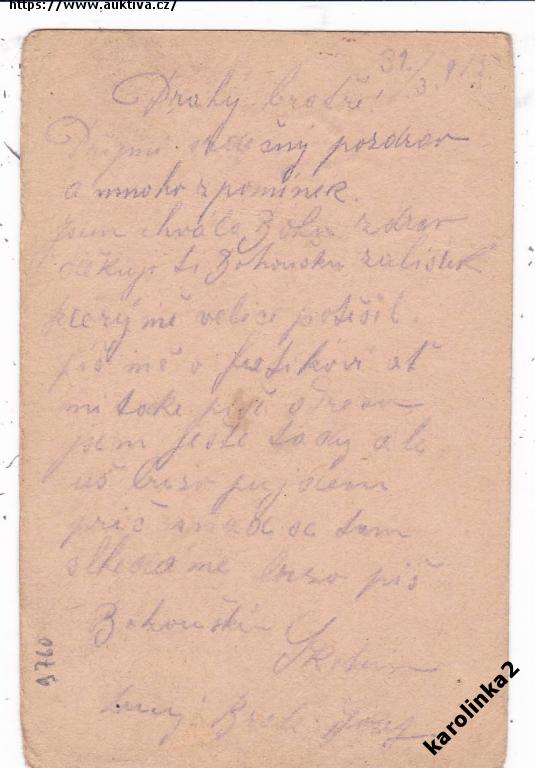 https://www.auktiva.cz/
31./3. 91
Drahý bratře!
Přijmi srdečný pozdrav
a mnoho zpomínek.
jsem chvála Bohu zdrav
děkuji ti Bohoušku za lístek
který mě velice potěšil.
piš mě o Frutikovi ať
mi take piše
jsem ještě tady ale
už brzo pujdem
prič snad se tam
shledáme brzo piš
Bohoušku
Bratr Josef
9760
karolinka2